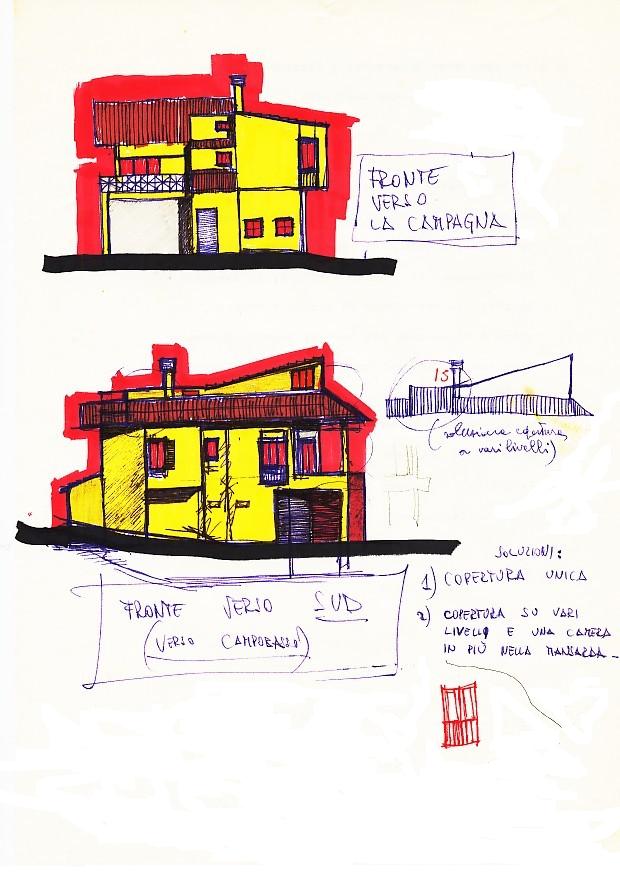 FRONTE
VERSO
LA CAMPAGNA
15
(soluzione copertura
a vari livelli)
SOLUZIONI:
1) COPERTURA UNICA
2) COPERTURA SU VARI
LIVELLI E UNA CAMERA
IN PIÙ NELLA MANSARDA -
FRONTE VERSO SUD
(VERSO CAMPOBASSO)